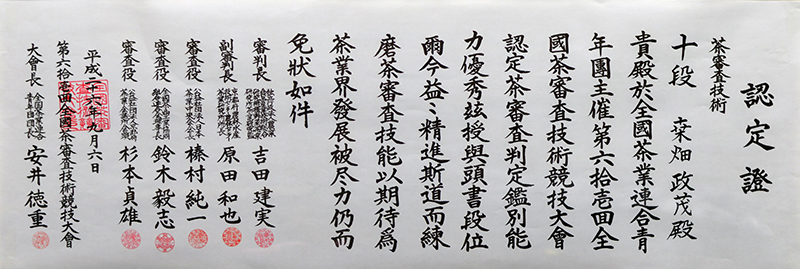 認定證
茶審査技術
十段 栞畑 政茂殿
貴殿於全國茶業連合青
年團主催第六拾壱回全
國茶審査技術競技大會
認定茶審査判定鑑別能
力優秀玆授與頭書段位
爾今益〻精進斯道而練
磨茶審査技能以期待爲
茶業界發展被尽力仍而
免狀如件
審判長 吉田建実
副審判長 原田和也
審査役 榛村純一
審査役 鈴木毅志
審査役 杉本貞雄
平成二十六年九月六日
第六拾壱回全國茶審査技術競技大會
大會長 安井徳重